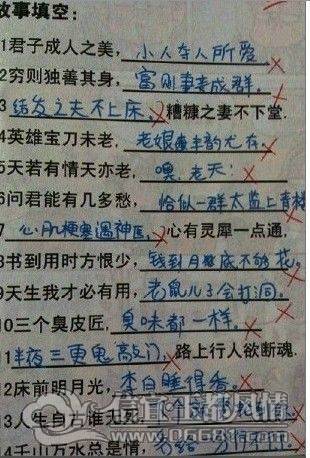 故事填空:
1君子成人之美,小人夺人所爱
2穷则独善其身,富则妻妾成群.
3结发之夫不上床,糟糠之妻不下堂.
4英雄宝刀未老,老娘丰韵尤存.
5天若有情天亦老,嘿,老天:
6问君能有几多愁,恰似一群太监上青楼
7心肌梗塞遇神医,心有灵犀一点通,
8书到用时方恨少,钱到月底不够花.
9天生我才必有用,老鼠儿子会打洞.
10三个臭皮匠,臭味都一样.
11半夜三更鬼敲门,路上行人欲断魂.
12床前明月光,李白睡得香.
13人生自古谁无死,
14千山万水总是情,
信宜玉都风情
www.0668.com